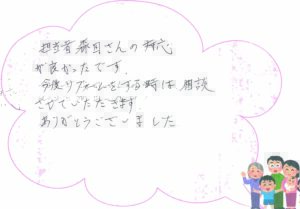 担当者森田さんの対応
が良かったです.
今後リフォームをする時は相談
させていただきます
ありがとうございました